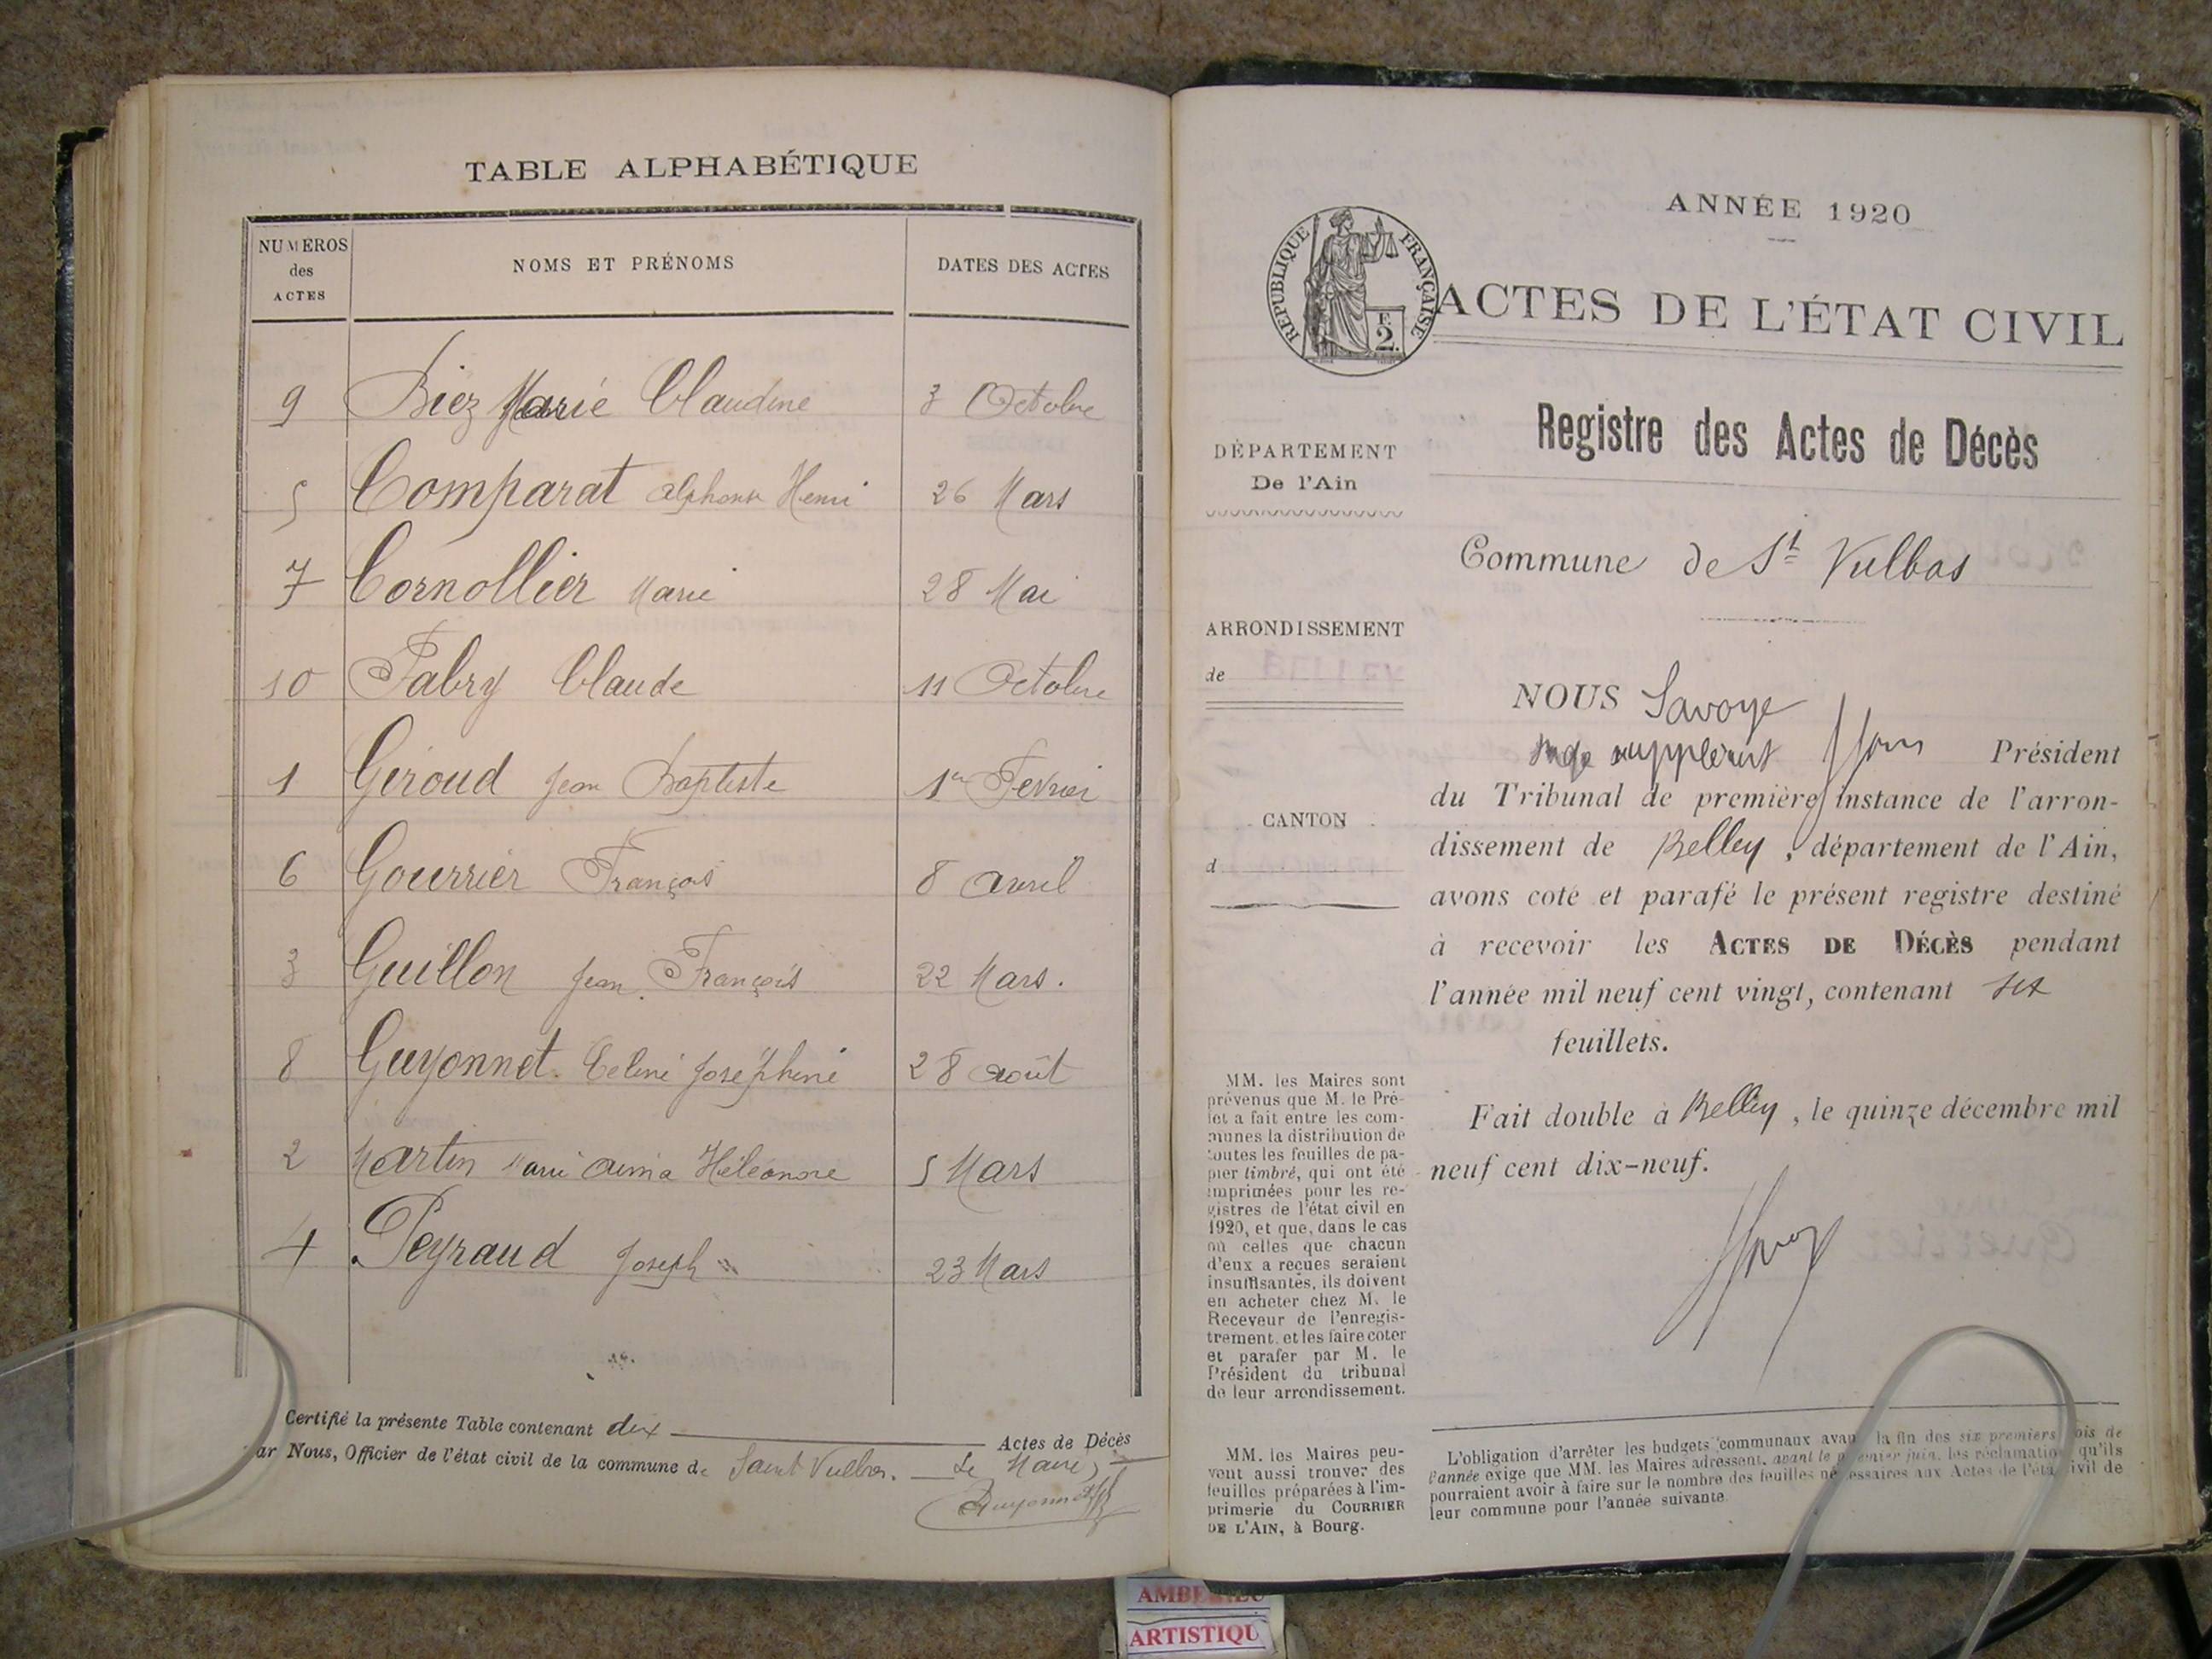 TABLE ALPHABÉTIQUE
NUMÉROS des ACTES
NOMS ET PRÉNOMS
DATES DES ACTES
9 Biez Marie Claudine 3 Octobre
5 Comparat Alphonse Henri 26 Mars
7 Cornollier Marie 28 Mai
10 Fabry Claude 11 Octobre
1 Giroud Jean Baptiste 1er Fevrier
6 Gourrier François 8 avril
3 Guillon Jean François 22 Mars.
8 Guyonnet. Celine Joséphine 28 août
2 Martin Marie Héléonore 5 Mars
4 Peyraud Joseph 23 Mars
Certifié la présente Table contenant dix Actes de Décès
ar Nous, Officier de l'état civil de la commune de Saint Vulbas. Le Maire,
Guyonnet
ANNÉE 1920
RÉPUBLIQUE FRANÇAISE
F. 2.
ACTES DE L'ÉTAT CIVIL
Registre des Actes de Décès
DÉPARTEMENT
De l'Ain
Commune de St Vulbas
ARRONDISSEMENT
de
CANTON
d
NOUS Savoye
Juge suppléant Président
du Tribunal de première instance de l'arron-
dissement de Belley, département de l'Ain,
avons coté et parafé le présent registre destiné
à recevoir les ACTES DE DÉCÈS pendant
l'année mil neuf cent vingt, contenant six
feuillets.
Fait double à Belley, le quinze décembre mil
neuf cent dix-neuf.
MM. les Maires sont
prévenus que M. le Pré-
fet a fait entre les com-
munes la distribution de
toutes les feuilles de pa-
pier timbré, qui ont été
imprimées pour les re-
gistres de l'état civil en
1920, et que, dans le cas
où celles que chacun
d'eux a reçues seraient
insuffisantes, ils doivent
en acheter chez M. le
Receveur de l'enregis-
trement, et les faire coter
et parafer par M. le
Président du tribunal
de leur arrondissement.
MM. les Maires peu-
vent aussi trouver des
feuilles préparées à l'im-
primerie du COURRIER
DE L'AIN, à Bourg.
L'obligation d'arrêter les budgets communaux avant la fin des six premiers mois de
l'année exige que MM. les Maires adressent, avant le premier juin, les réclamations qu'ils
pourraient avoir à faire sur le nombre des feuilles nécessaires aux Actes de l'état civil de
leur commune pour l'année suivante.
ARTISTIQU